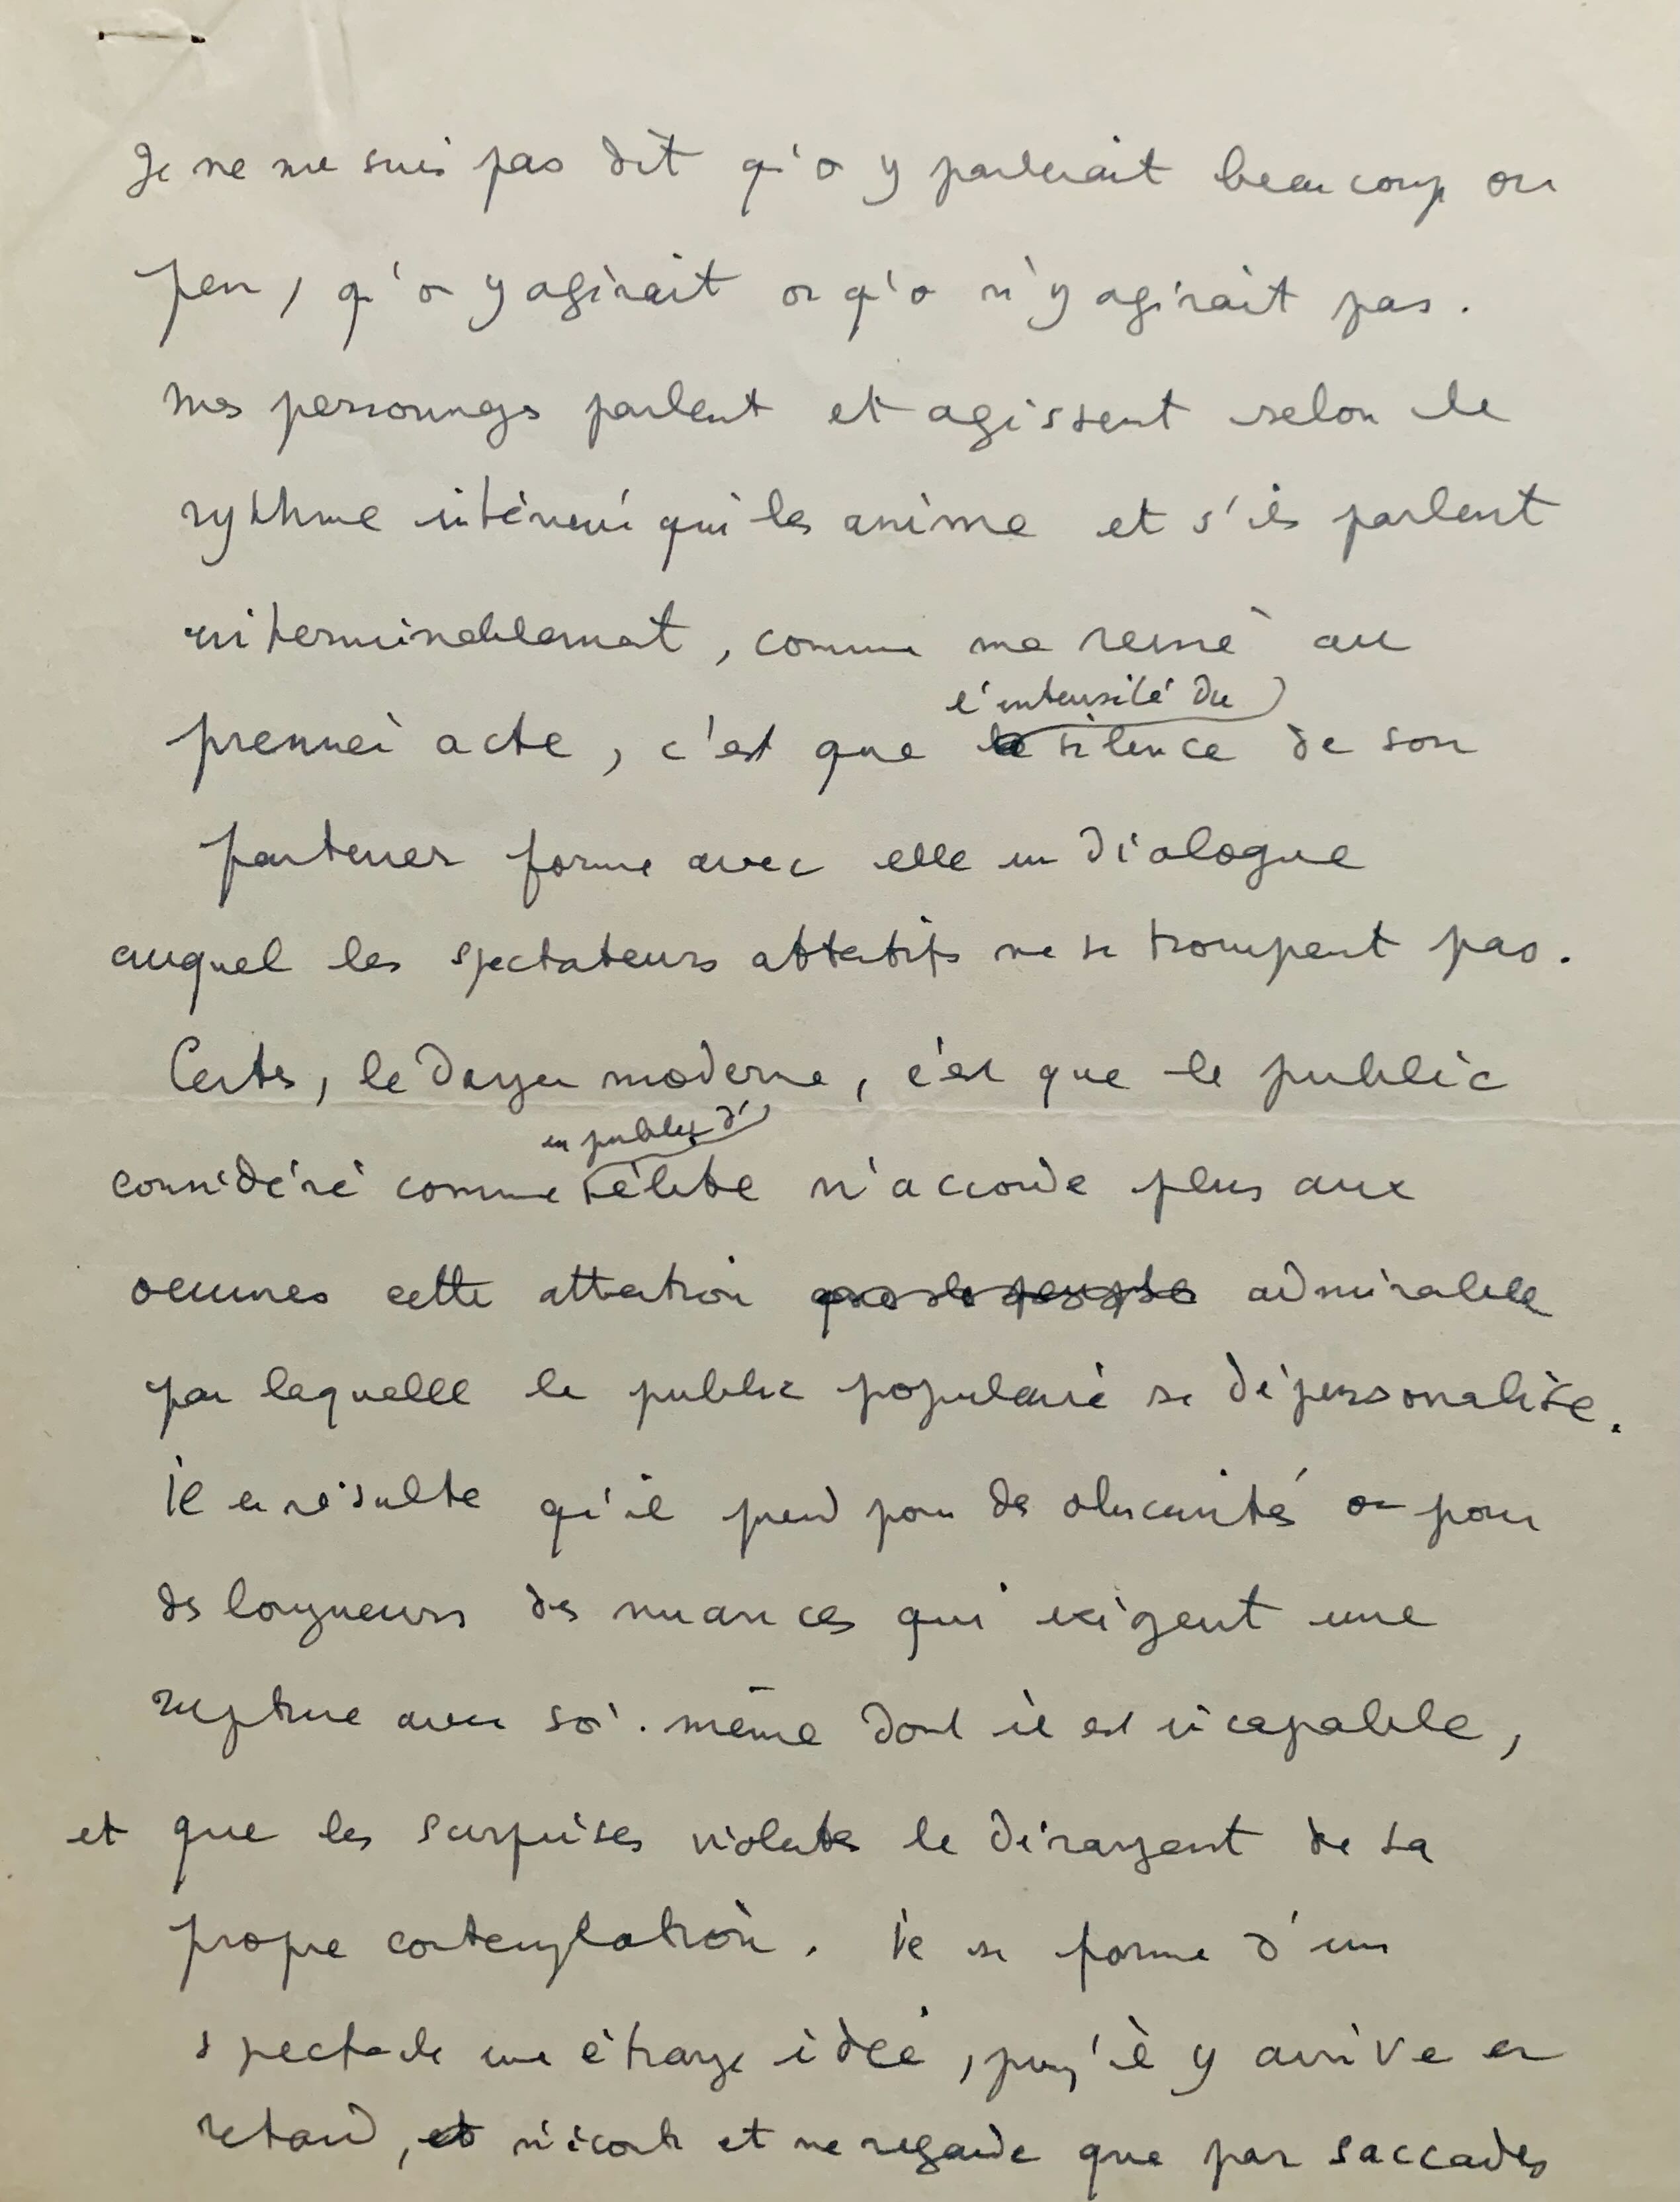 Je ne me suis pas dit qu'on y parlerait beaucoup ou
peu, qu'on y agirait ou qu'on n'y agirait pas.
Mes personnages parlent et agissent selon le
rythme intérieur qui les anime et s'ils parlent
interminablement, comme ma reine au
l'intensité du
premier acte, c'est que silence de son
partenaire forme avec elle un dialogue
auquel les spectateurs attentifs ne se trompent pas.
Certes, le danger moderne, c'est que le public
un public d'
considéré comme élite n'accorde plus aux
oeuvres cette attention admirable
par laquelle le public populaire se dépersonalise.
Il en résulte qu'il prend pour des obscurités ou pour
des longueurs des nuances qui exigent une
rupture avec soi-même dont il est incapable,
et que les surprises violentes le dérangent de sa
propre contemplation. Il se forme d'un
spectacle une étrange idée, puisqu'il y arrive en
retard, et n'écoute et ne regarde que par saccades